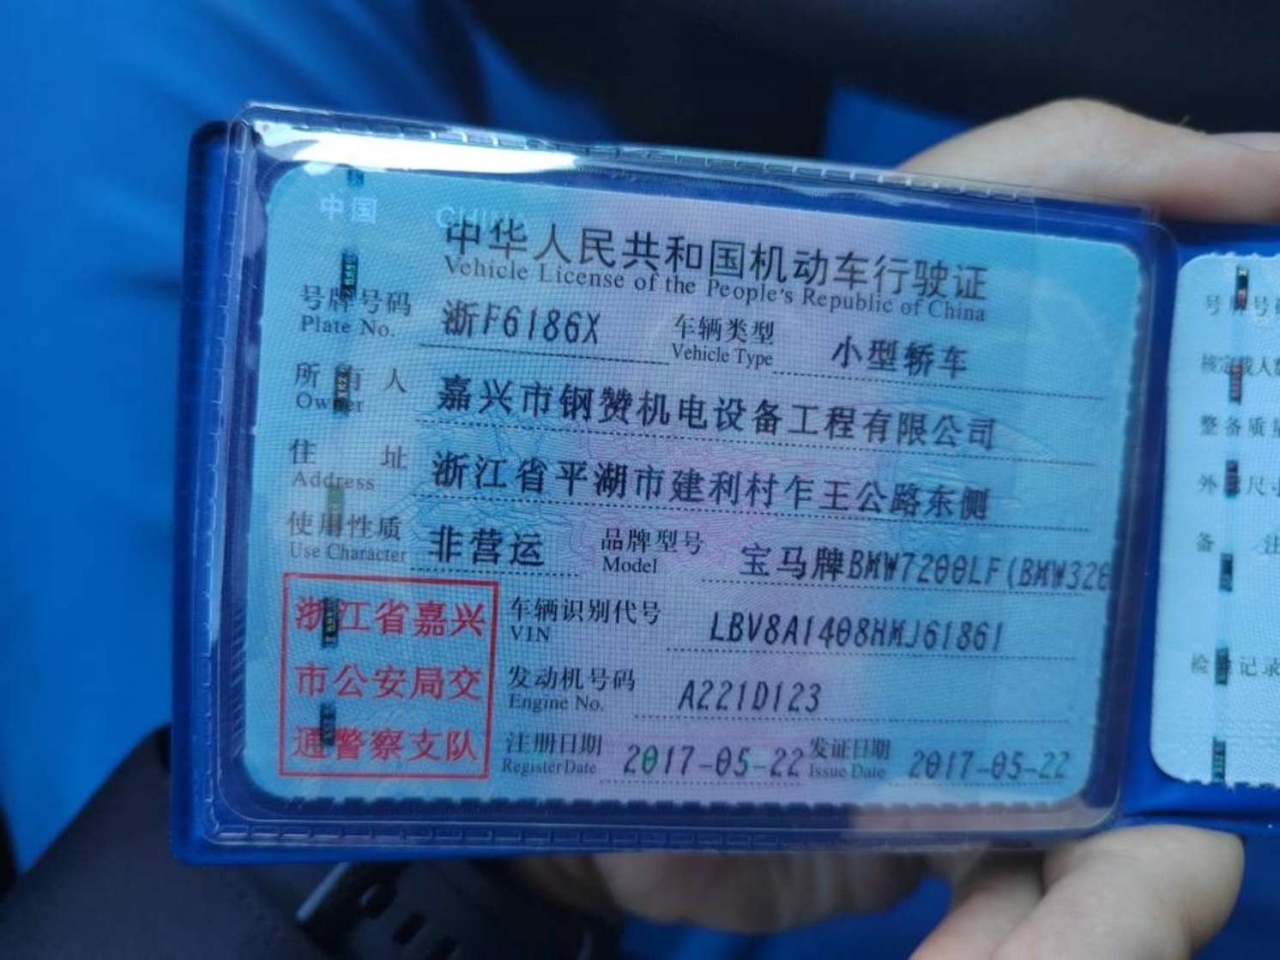 中国 CHINA
中华人民共和国机动车行驶证
Vehicle License of the People's Republic of China
号牌号码 浙F6186X 车辆类型 小型轿车
Plate No. Vehicle Type
所有人 嘉兴市钢赞机电设备工程有限公司
Owner
住址 浙江省平湖市建利村乍王公路东侧
Address
使用性质 非营运 品牌型号 宝马牌BMW7200LF(BMW320
Use Character Model
浙江省嘉兴
市公安局交
通警察支队
车辆识别代号 LBV8A1408HMJ61861
VIN
发动机号码 A221D123
Engine No.
注册日期 2017-05-22 发证日期 2017-05-22
Register Date Issue Date
号牌号
核定载人
整备质量
外廓尺寸
备 注
检验记录